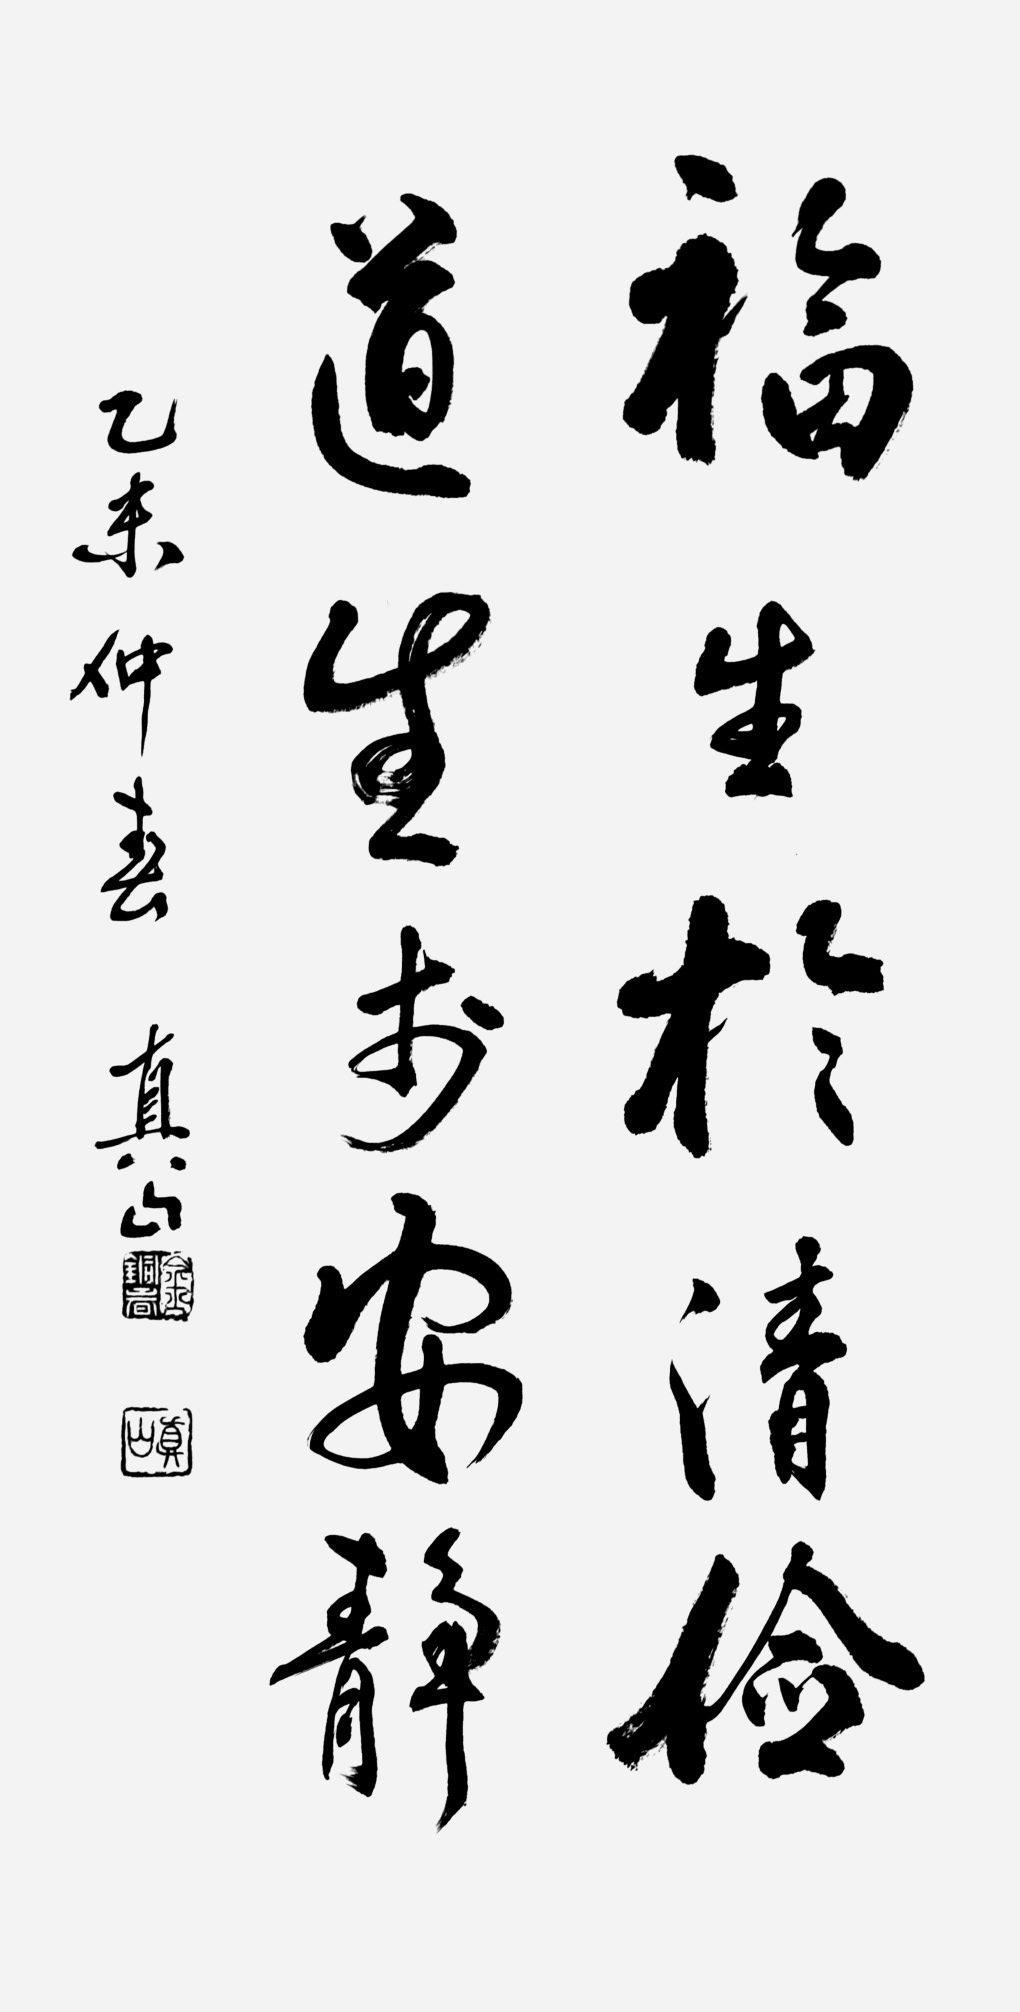 福生於清儉
道生於安靜
乙未仲春 真山
真山